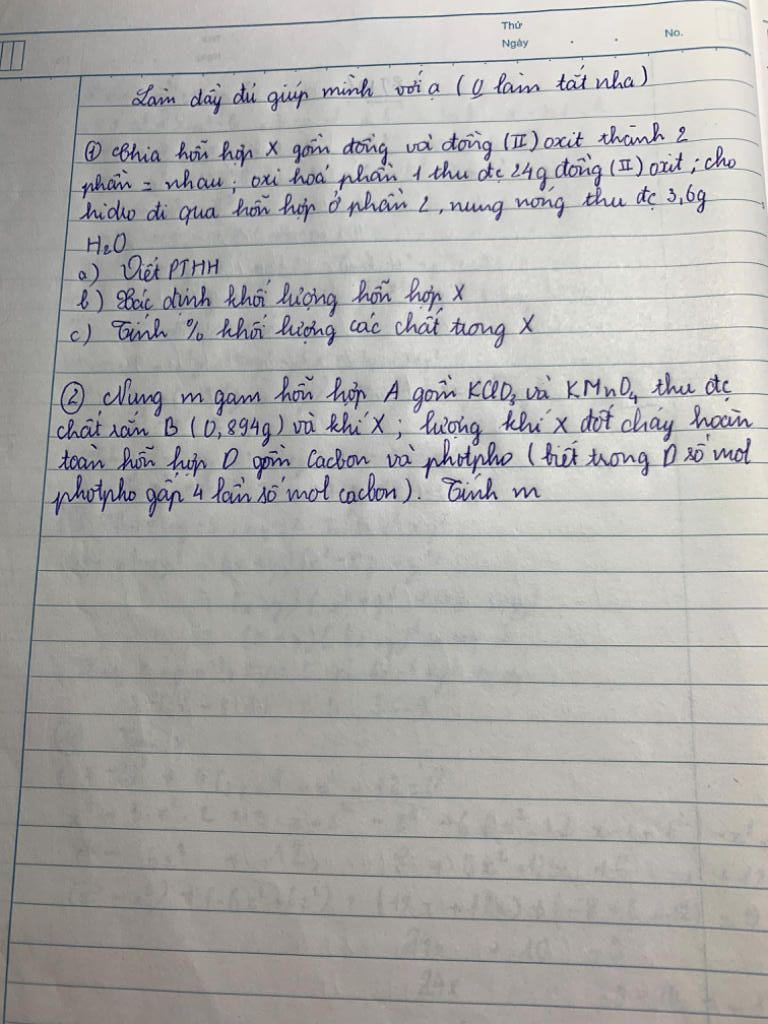 Thứ
Ngày . . No.
Làm đầy đủ giúp mình với ạ ( làm tắt nha)
① Chia hỗn hợp X gồm đồng và đồng (II) oxit thành 2
phần = nhau ; oxi hoá phần 1 thu đc 24g đồng (II) oxit ; cho
hidro đi qua hỗn hợp ở phần 2, nung nóng thu đc 3,6g
H₂O
a) Viết PTHH
b) Xác định khối lượng hỗn hợp X
c) Tính % khối lượng các chất trong X
② Nung m gam hỗn hợp A gồm KClO₃ và KMnO₄ thu đc
chất rắn B (0,894g) và khí X ; lượng khí X đốt cháy hoàn
toàn hỗn hợp D gồm Cacbon và photpho (biết trong D số mol
photpho gấp 4 lần số mol cacbon). Tính m